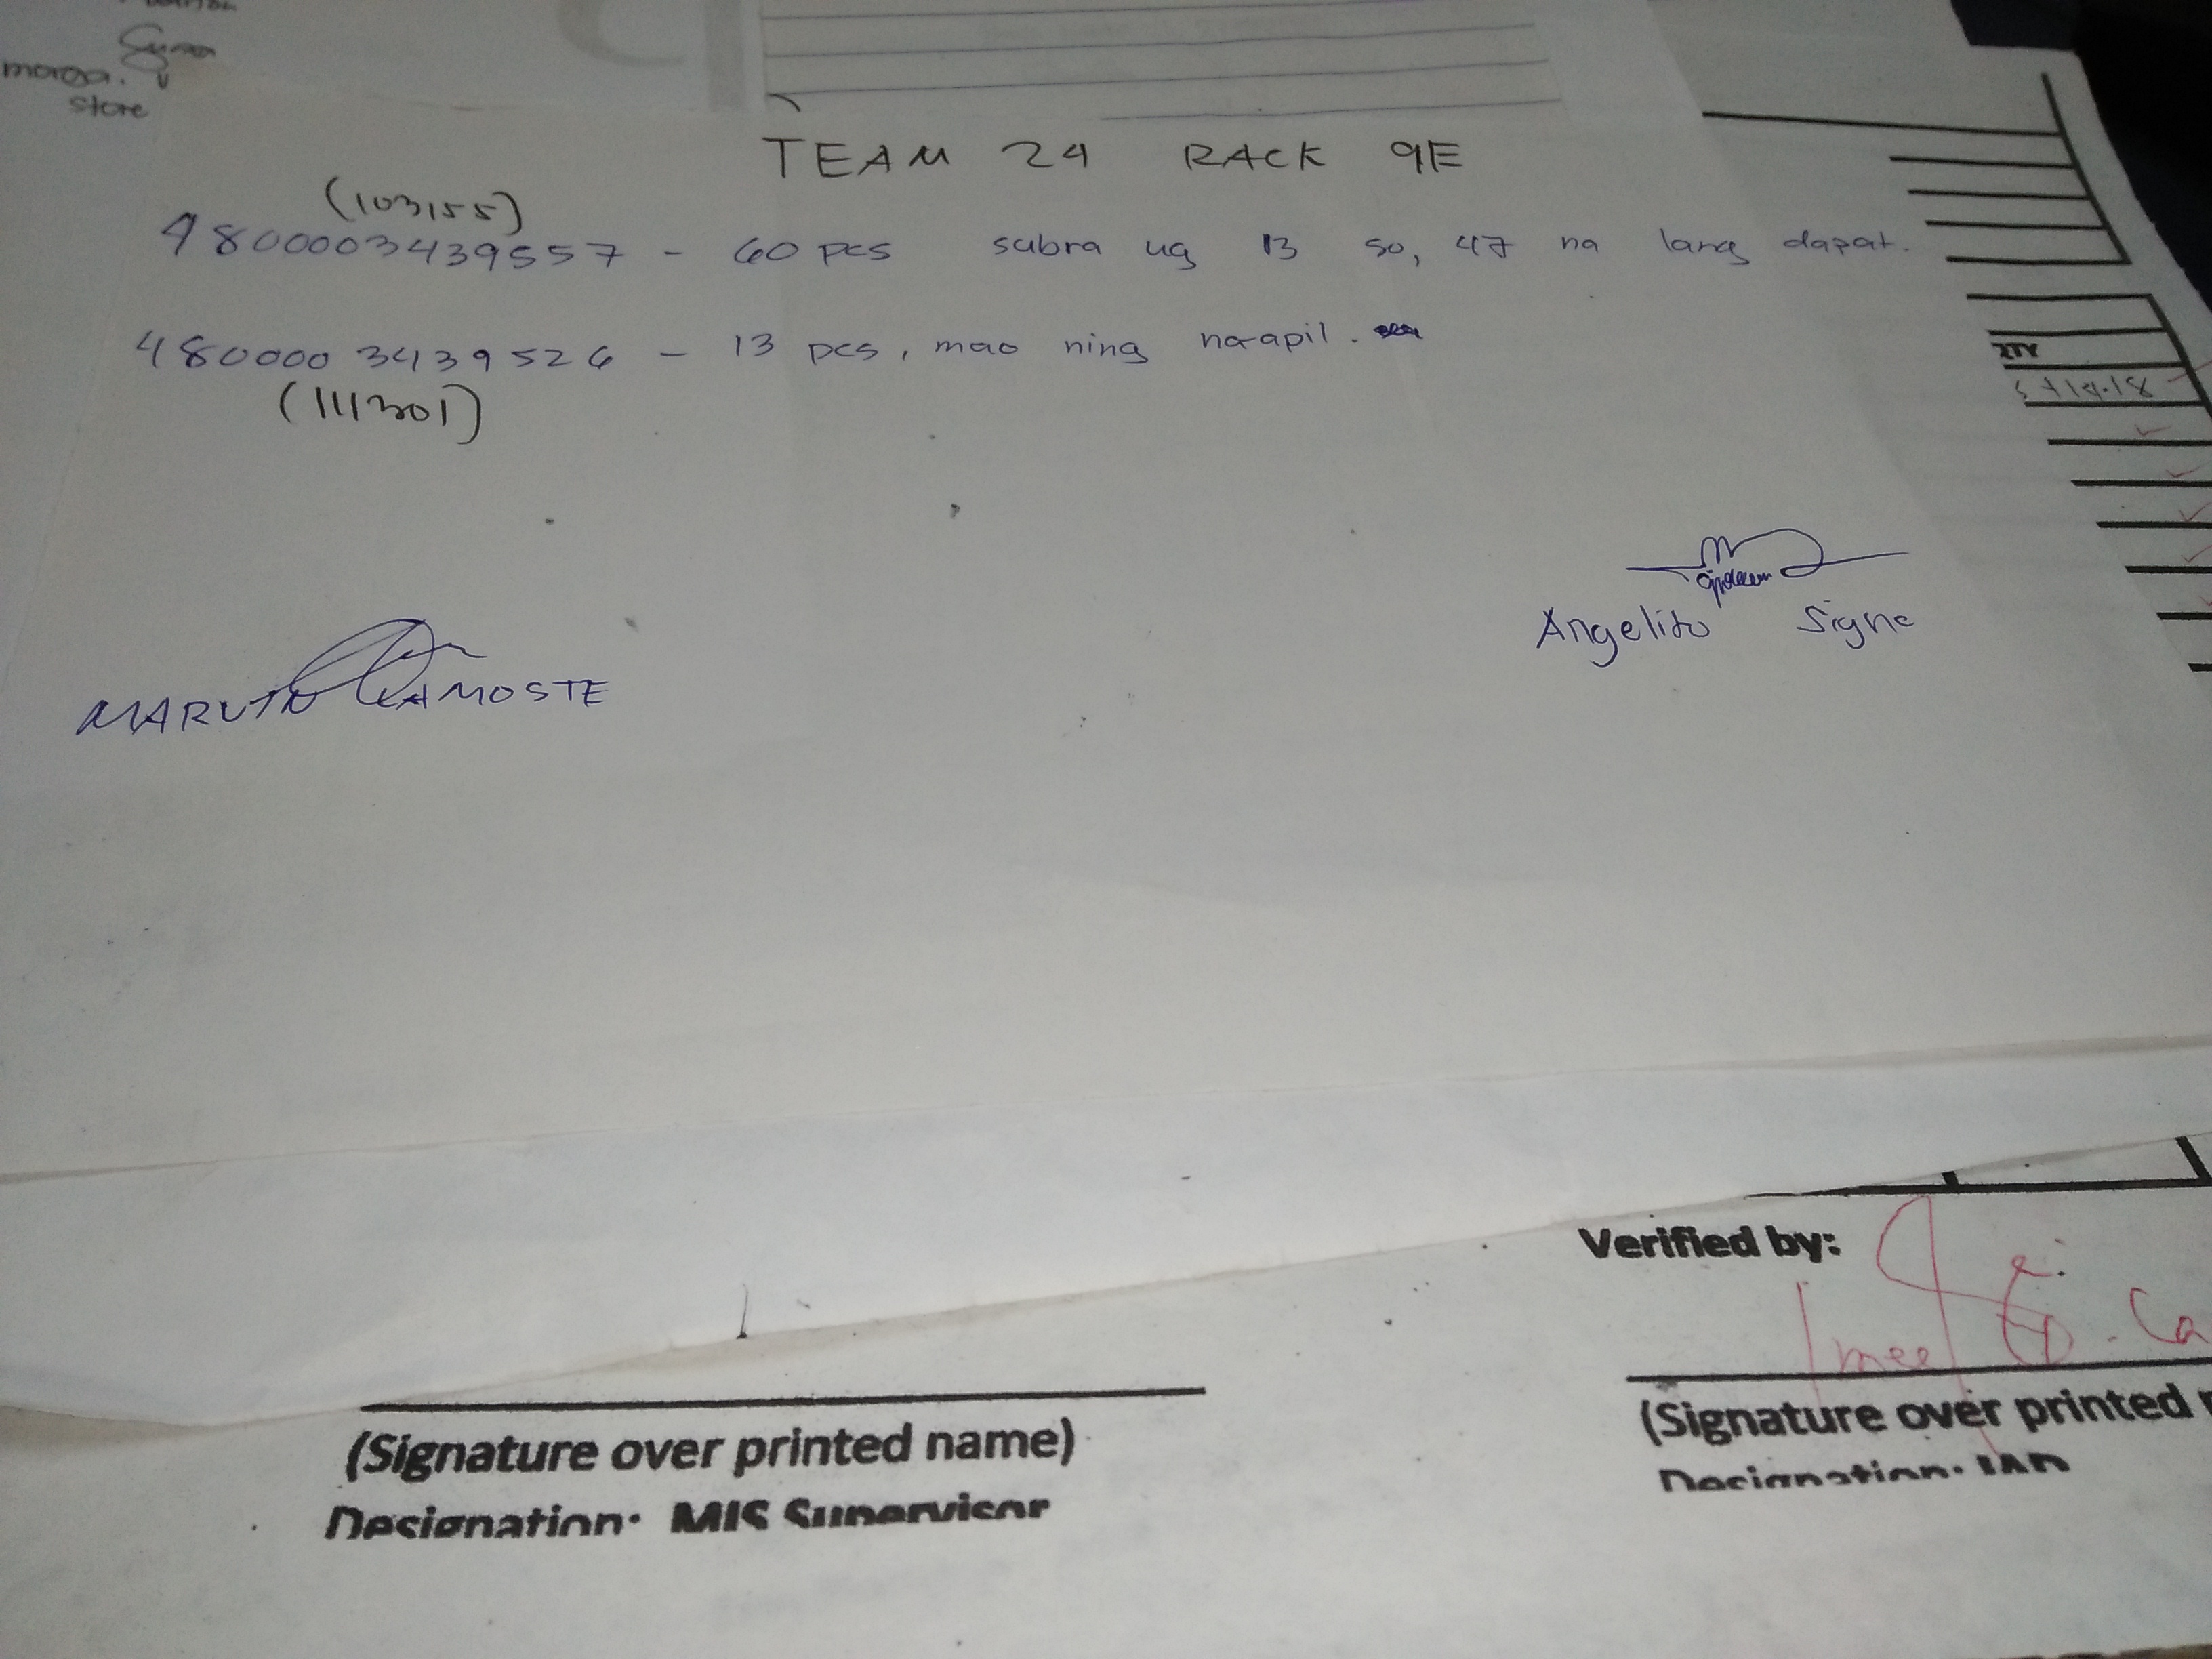 marga.
store
TEAM 24 RACK 9E
(103155)
4800003439557 - 60 pcs subra ug 13 so, 47 na lang dapat.
4800003439526 - 13 pcs, mao ning na-apil.
(111301)
Angelito Signe
LAMOSTE
Verified by:
(Signature over printed name)
(Signature over printed
Designation: MIS Supervisor
Designation: IAD